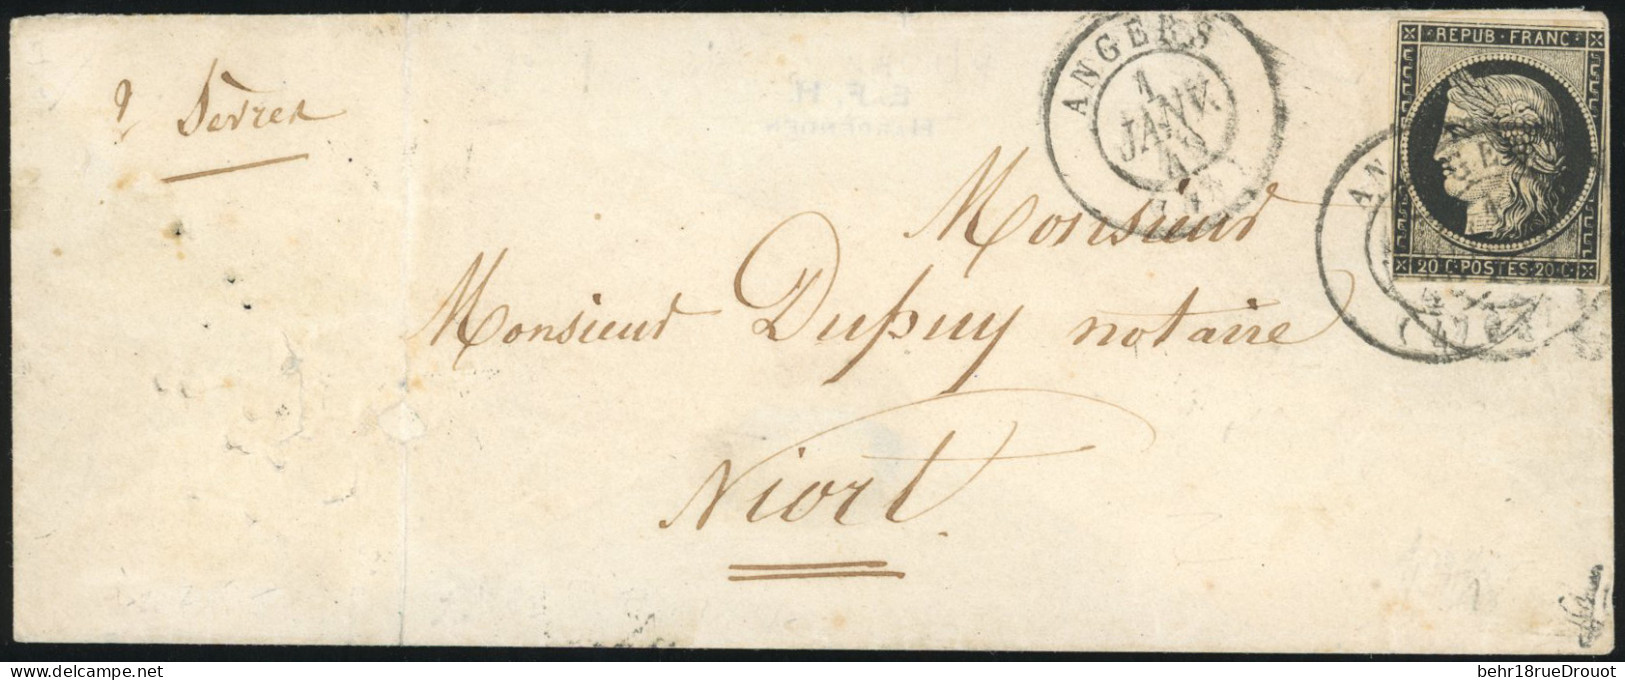 ANGERS
1
JANV.
49
REPUB · FRANC ·
20 · C · POSTES · 20 · C ·
2 Sèvres
E. F. H.
Monsieur
Monsieur Dupuy notaire
Niort
behr18rueDrouot